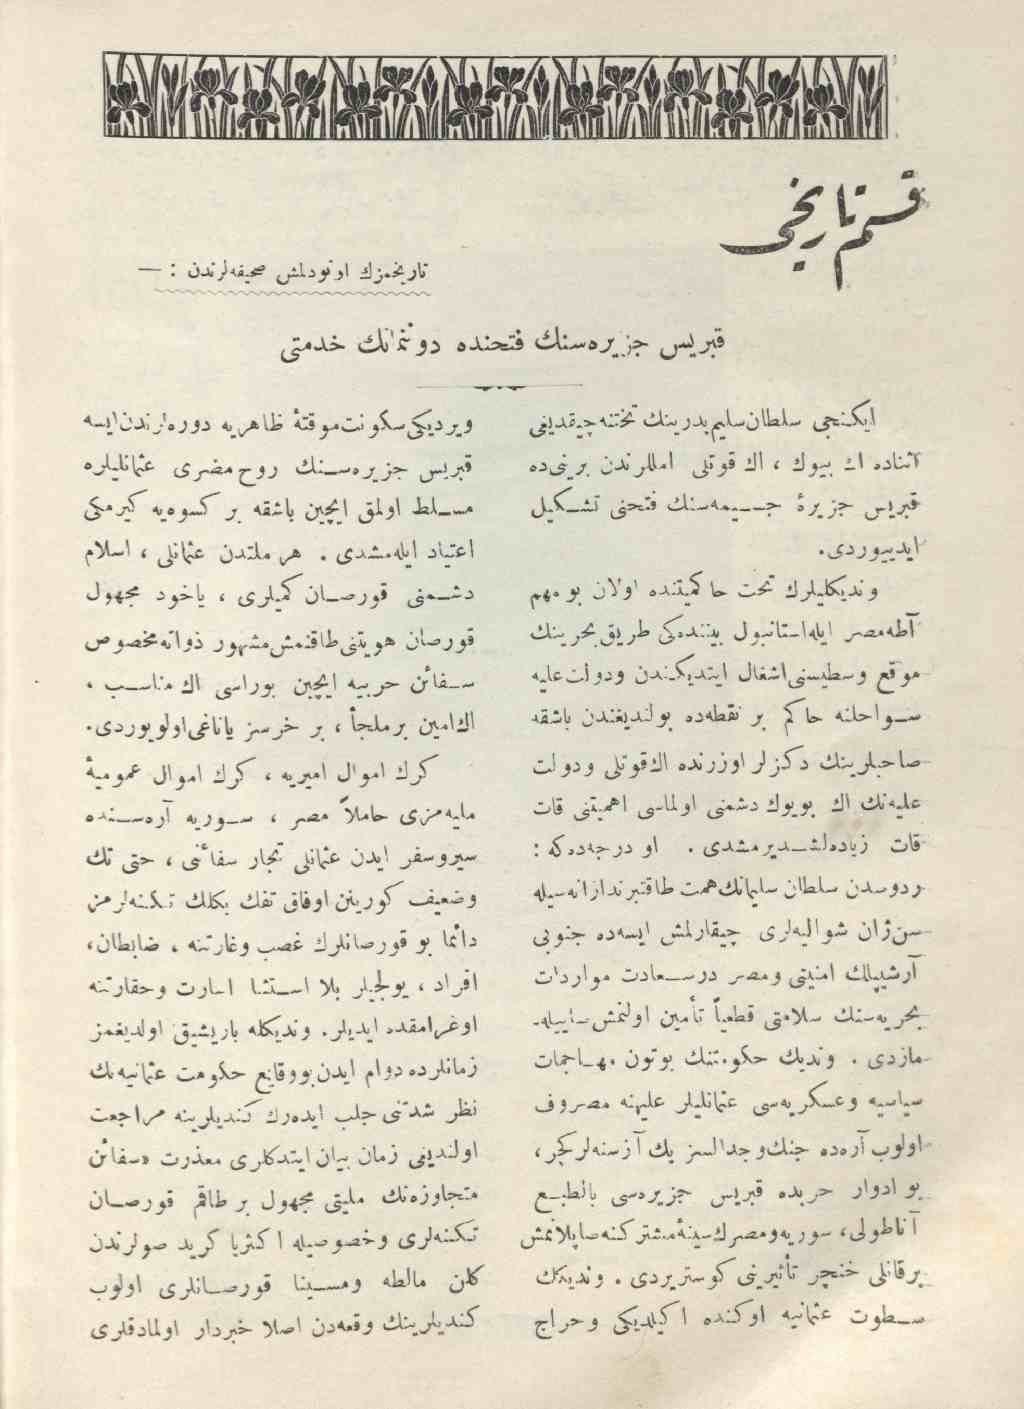 قسم تاريخى
تاريخمزك اونودلمش صحيفه‌لرندن : —
قبريس جزيره‌سنك فتحنده دوننمانك خدمتى
ايكنجى سلطان سليم بدرينك تختنه چيقديغى
اثناده اك بيوك ، اك قوتلى امللرندن برينى‌ده
قبريس جزيرۀ جسيمه‌سنك فتحنى تشكيل
ايدييوردى.
ونديكليلرك تحت حاكميتنده اولان بو مهم
آطه مصر ايله استانبول بيننده‌كى طريق بحرينك
موقع وسطيسنى اشغال ايتديكندن ودولت عليه
سواحلنه حاكم بر نقطه‌ده بولنديغندن باشقه
صاحبلرينك دكزلر اوزرنده اك قوتلى ودولت
عليه‌نك اك بويوك دشمنى اولماسى اهميتنى قات
قات زياده‌لشديرمشدى . او درجه‌ده‌كه :
ردوسدن سلطان سليمانك همت طاقتبرندازانه‌سيله
سن ژان شواليه‌لرى چيقارلمش ايسه‌ده جنوبى
آرشيپلك امنيتى ومصر درسعادت مواردات
بحريه‌سنك سلامتى قطعياً تأمين اولنمش صاييله-
مازدى . ونديك حكومتنك بوتون مهاجمات
سياسيه وعسكريه‌سى عثمانليلر عليهنه مصروف
اولوب آره‌ده جنك وجدالسز پك آز سنه‌لر كچر،
بو ادوار حربده قبريس جزيره‌سى بالطبع
آناطولى، سوريه ومصرك سينۀ مشتركنه صاپلانمش
برقانلى خنجر تأثيرينى كوستريردى . ونديكك
سطوت عثمانيه اوكنده اكيلديكى وحراج
ويرديكى سكونت موقتۀ ظاهريه دوره‌لرندن ايسه
قبريس جزيره‌سنك روح مضرى عثمانليلره
مسلط اولمق ايچين باشقه بر كسوه‌يه كيرمكى
اعتياد ايله‌مشدى . هر ملتدن عثمانلى ، اسلام
دشمنى قورصان كميلرى ، ياخود مجهول
قورصان هويتنى طاقنمش مشهور ذواته مخصوص
سفائن حربيه ايچين بوراسى اك مناسب ،
اك امين بر ملجأ ، بر خرسز ياتاغى اولويوردى.
كرك اموال اميريه ، كرك اموال عموميۀ
مايه‌مزى حاملاً مصر ، سوريه آره‌سنده
سيروسفر ايدن عثمانلى تجار سفائنى ، حتى تك
وضعيف كورينن اوفاق تفك بكلك تكنه‌لرمز
دائما بو قورصانلرك غصب وغارتنه ، ضابطان،
افراد ، يولجيلر بلا استثنا اسارت وحقارتنه
اوغرامقده ايديلر. ونديكله باريشيق اولديغمز
زمانلرده دوام ايدن بووقايع حكومت عثمانيه‌نك
نظر شدتنى جلب ايده‌رك كنديلرينه مراجعت
اولنديغى زمان بيان ايتدكلرى معذرت «سفائن
متجاوزه‌نك مليتى مجهول بر طاقم قورصان
تكنه‌لرى وخصوصيله اكثريا كريد صولرندن
كلن مالطه ومسينا قورصانلرى اولوب
كنديلرينك وقعه‌دن اصلا خبردار اولمادقلرى